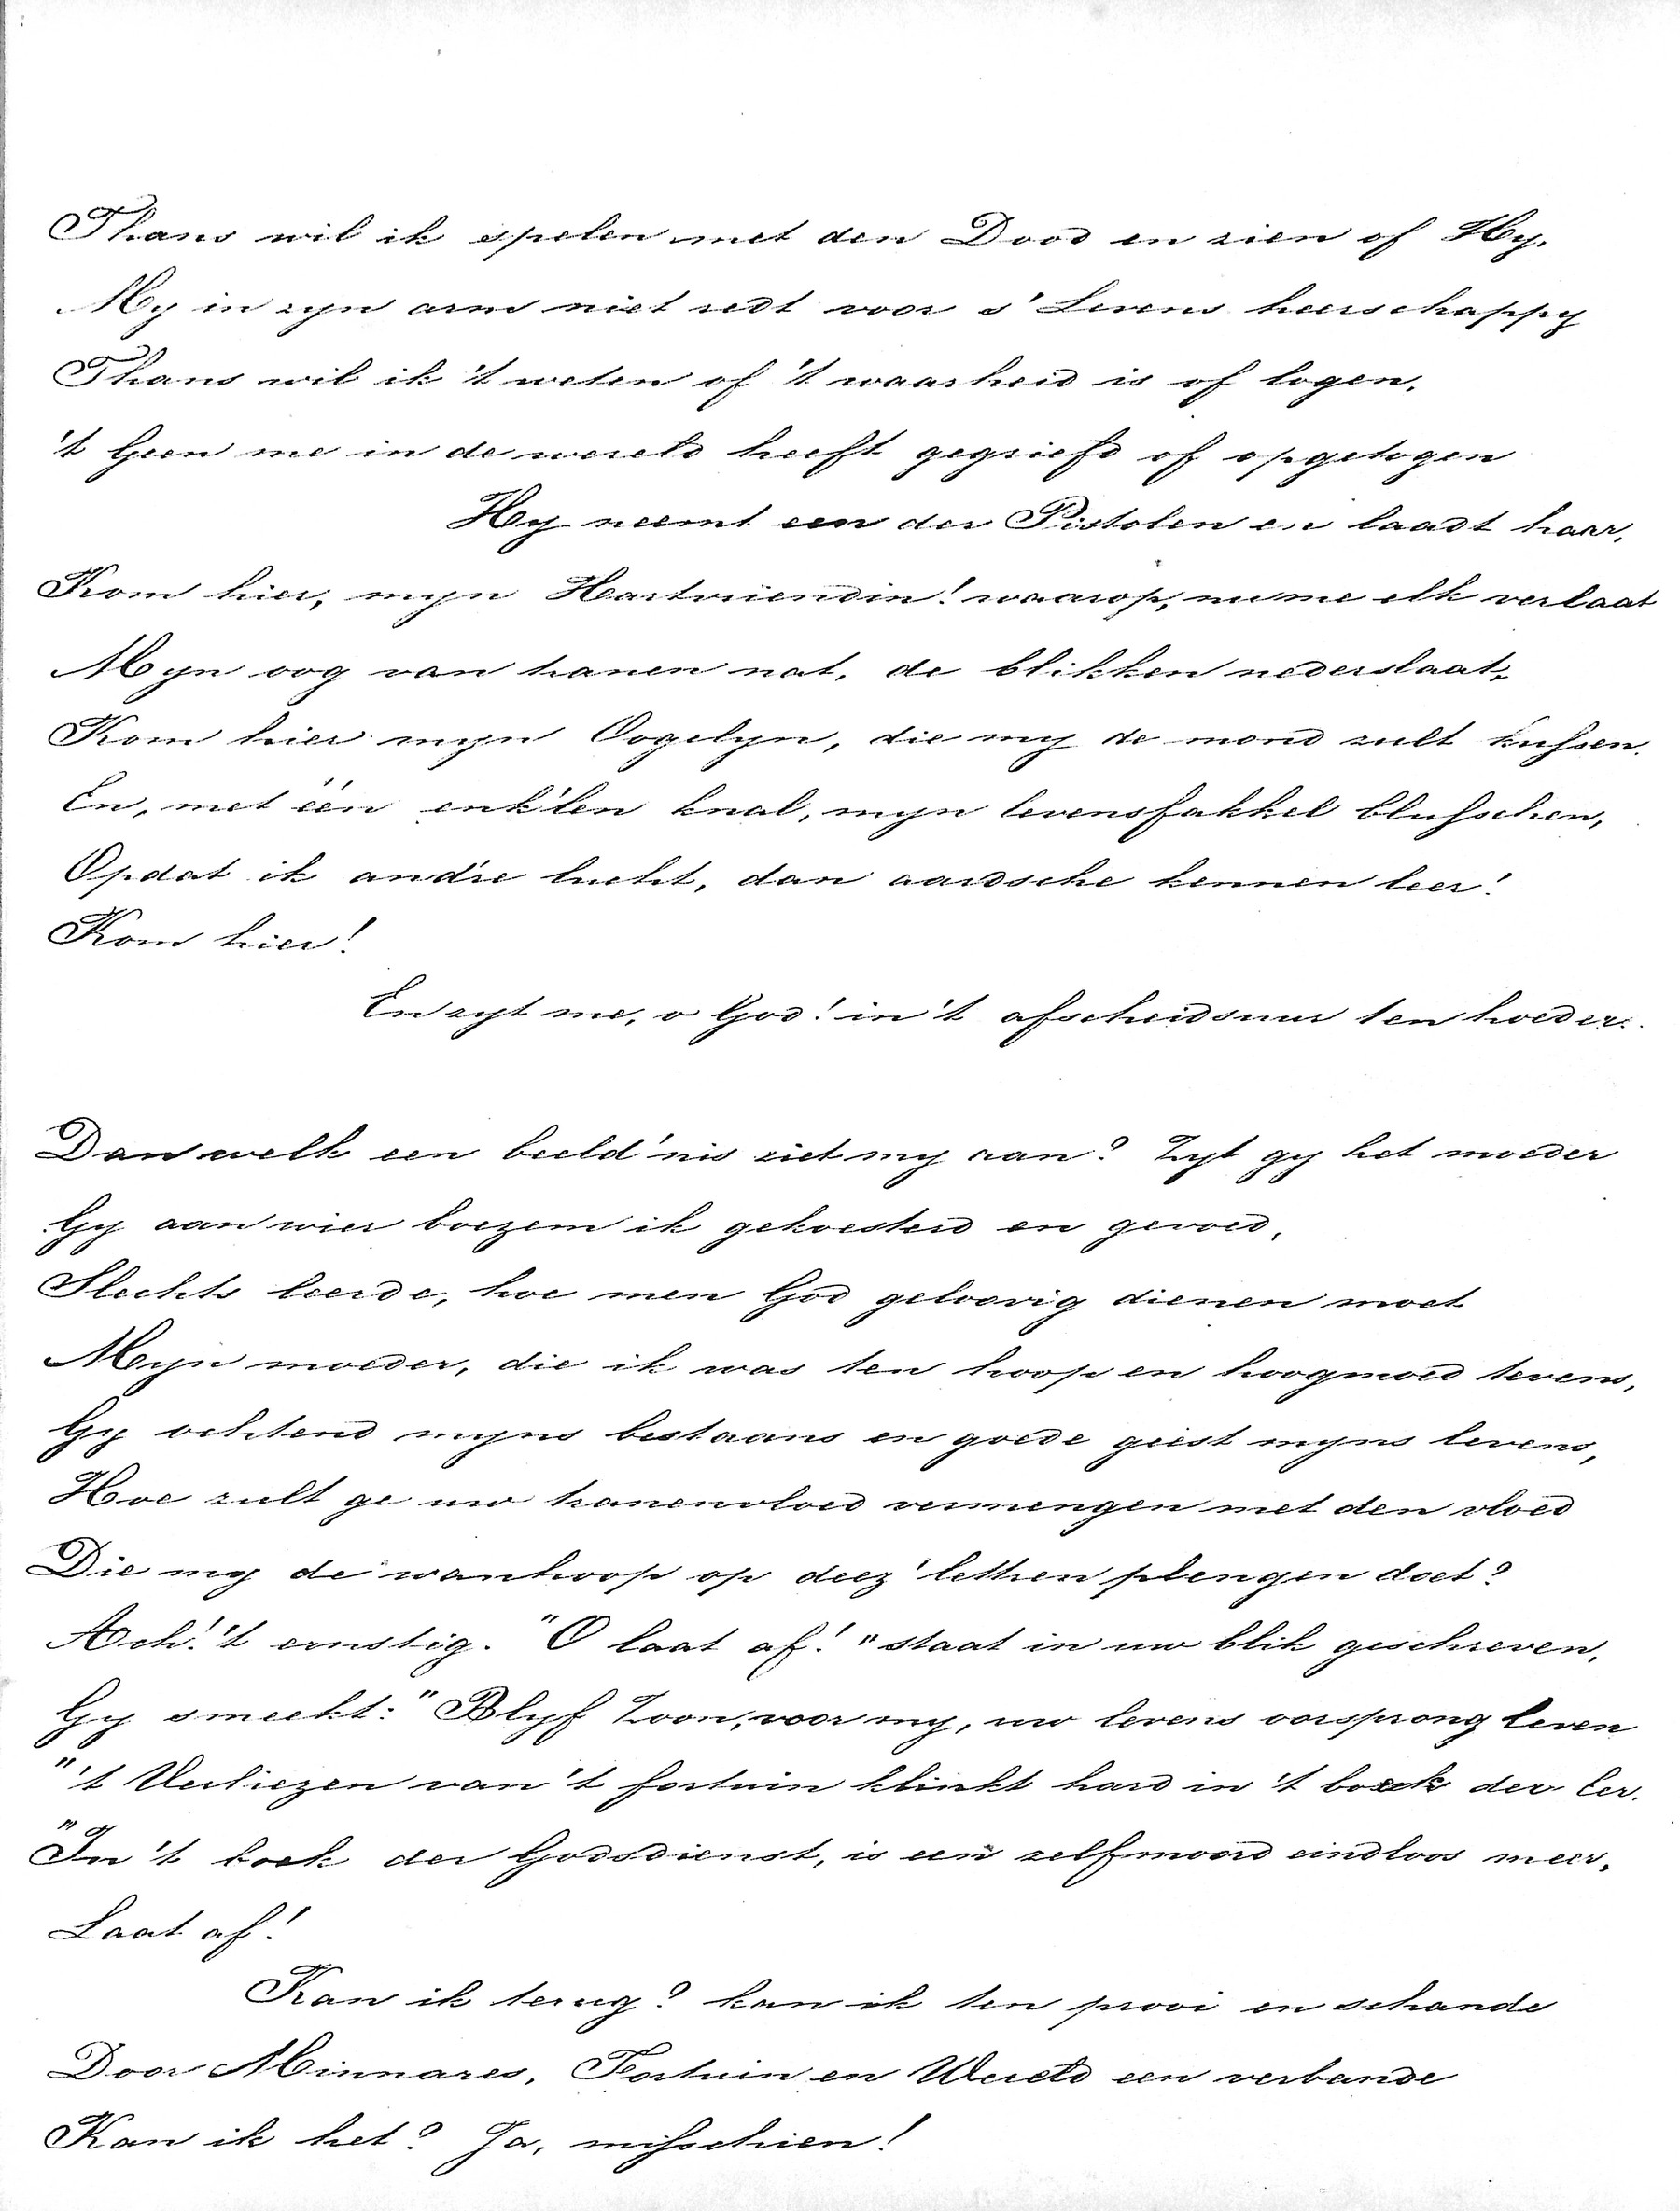 Thans wil ik spelen met den Dood en zien of Hy.
My in zyn arm niet redt voor s' Levens heerschappy
Thans wil ik 't weten of 't waarheid is of logen,
't Geen me in de wereld heeft gegriefd of opgetogen
Hy neemt een der Pistolen en laadt haar,
Kom hier, myn Hartvriendin! waarop, nu me elk verlaat
Myn oog van tranen nat, de blikken nederslaat,
Kom hier myn Vogelyn, die my de mond zult kussen.
En, met één enk'len knal, myn levensfakkel blusschen,
Opdat ik and're lucht, dan aardsche kennen leer!
Kom hier!
En zyt me, o God! in 't afscheidsuur ten hoeder.
Dan welk een beeld'nis ziet my aan? Zyt gy het moeder
Gy aan wier boezem ik gekoesterd en gevoed,
Slechts leerde, hoe men God geloovig dienen moet
Myn moeder, die ik was ten hoop en hoogmoed tevens,
Gy ochtend myns bestaans en goede geest myns levens,
Hoe zult ge uw tranenvloed vermengen met den vloed
Die my de wanhoop op deez' lett'ren plengen doet?
Ach! 't ernstig. "O laat af!" staat in uw blik geschreven,
Gy smeekt: "Blyf Zoon, voor my, uw levens oorsprong leven
"'t Verliezen van 't fortuin klinkt hard in 't boek der Eer.
"In 't boek der Godsdienst, is een zelfmoord eindloos meer.
Laat af!
Kan ik terug? kan ik ten prooi en schande
Door Minnares, Fortuin en Wereld een verbande
Kan ik het? Ja, misschien!